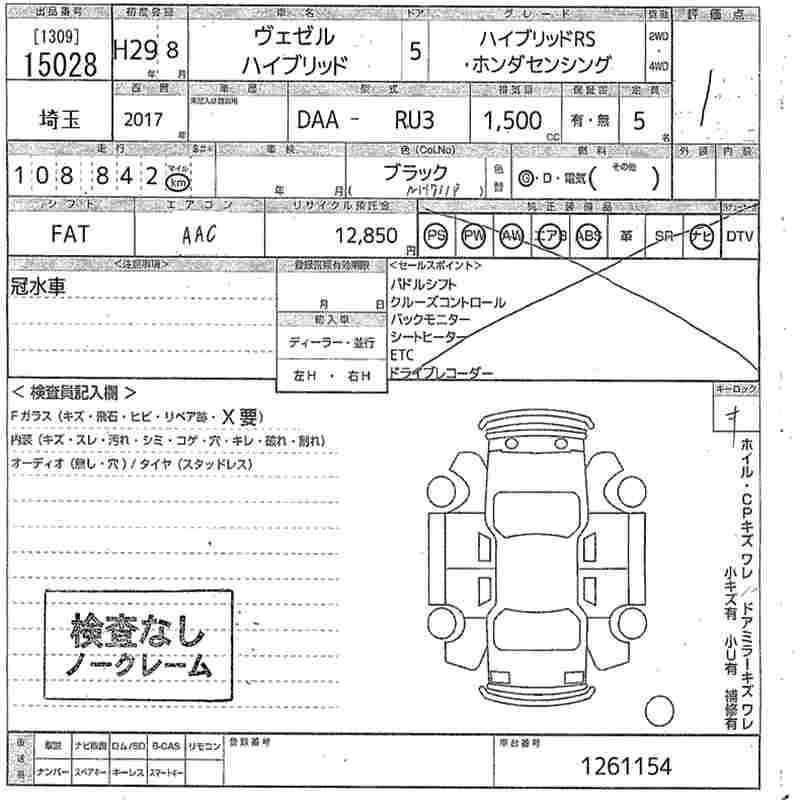 出品番号 初度登録 車名 ドア グレード 駆動 評価点
[1309] 15028 H29 年 8 月 ヴェゼル ハイブリッド 5 ハイブリッドRS ・ホンダセンシング 2WD ・ 4WD
西暦 車歴 型式 排気量 保証書 定員
埼玉 2017 年 DAA - RU3 1,500 CC 有・無 5 名
走行 車検 色(Col.No) 燃料 外装 内装
108,842 マイル km 年 月 ブラック ( NH731P ) 色替 G・D・電気( その他 )
シフト エアコン リサイクル預託金 純正装備品
FAT AAC 12,850 円 PS PW AW エアB ABS 革 SR ナビ DTV
<注意事項> 登録
冠水車 月 日
輸入車
ディーラー・並行
左H ・ 右H
<セールスポイント>
パドルシフト
クルーズコントロール
バックモニター
シートヒーター
ETC
ドライブレコーダー
< 検査員記入欄 >
Fガラス (キズ・飛石・ヒビ・リペア跡・X要)
内装 (キズ・スレ・汚れ・シミ・コゲ・穴・キレ・破れ・割れ)
オーディオ (無し・穴) / タイヤ (スタッドレス)
キーロック
キ
ホイル・CPキズ ワレ // ドアミラーキズ ワレ
小キズ有 小U有 補修有
検査なし
ノークレーム
後送品 取説 ナビ取説 ロム/SD B-CAS リモコン 登録番号 車台番号
ナンバー スペアキー キーレス スマートキー 1261154